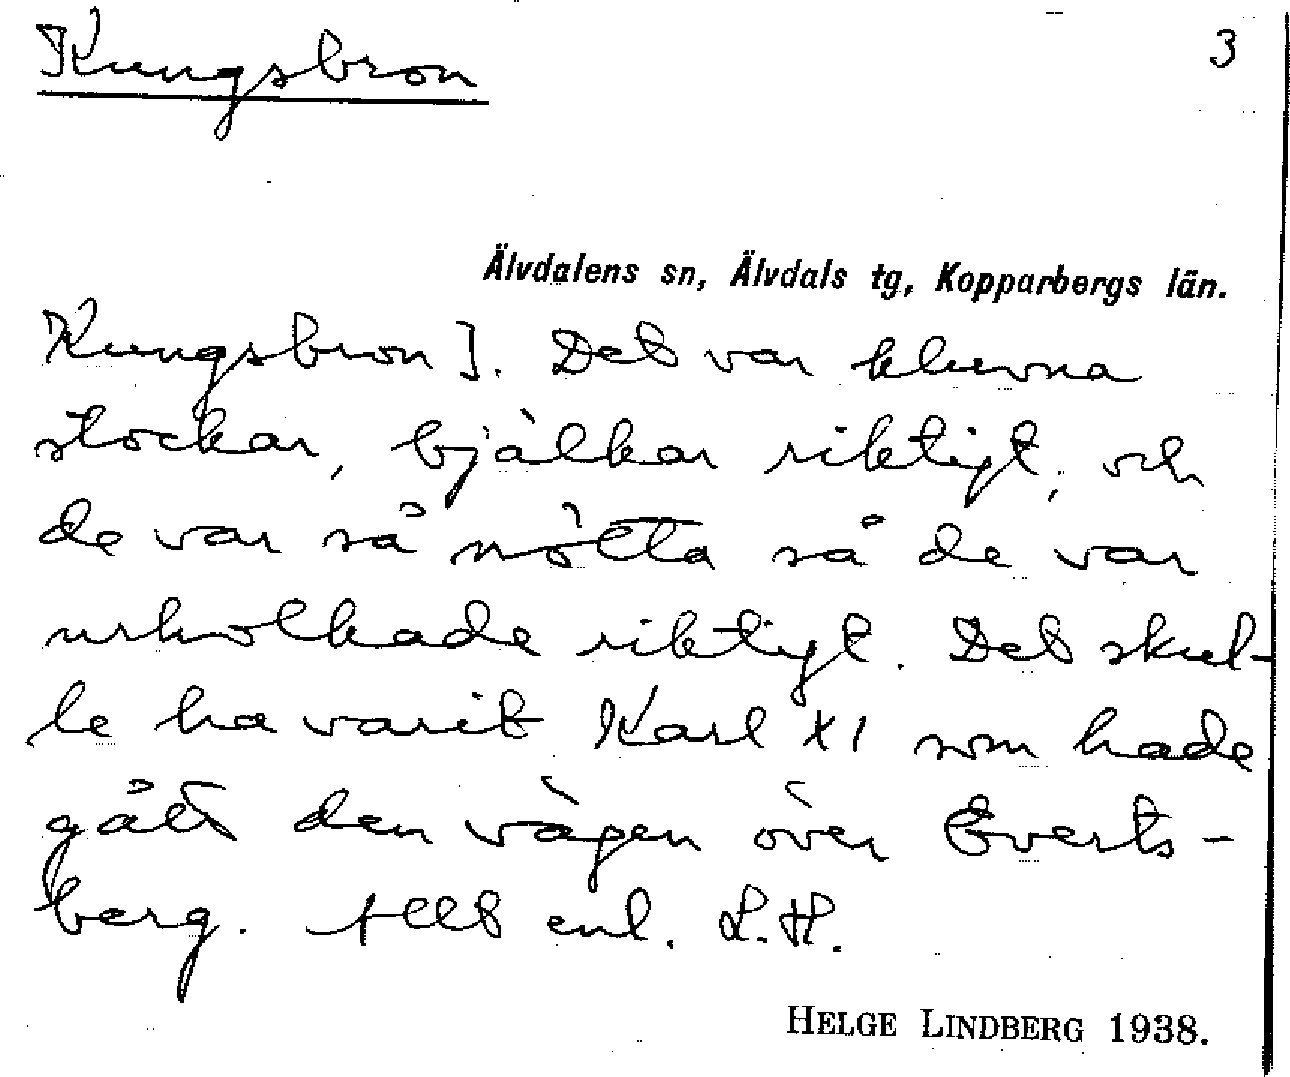 Kungsbron
3
Älvdalens sn, Älvdals tg, Kopparbergs län.
Kungsbron]. Det var kluvna
stockar, bjälkar riktigt, och
de var så nötta så de var
urholkade riktigt. Det skul-
le ha varit Karl XI som hade
gått den vägen över Everts-
berg. Allt enl. L.H.
HELGE LINDBERG 1938.